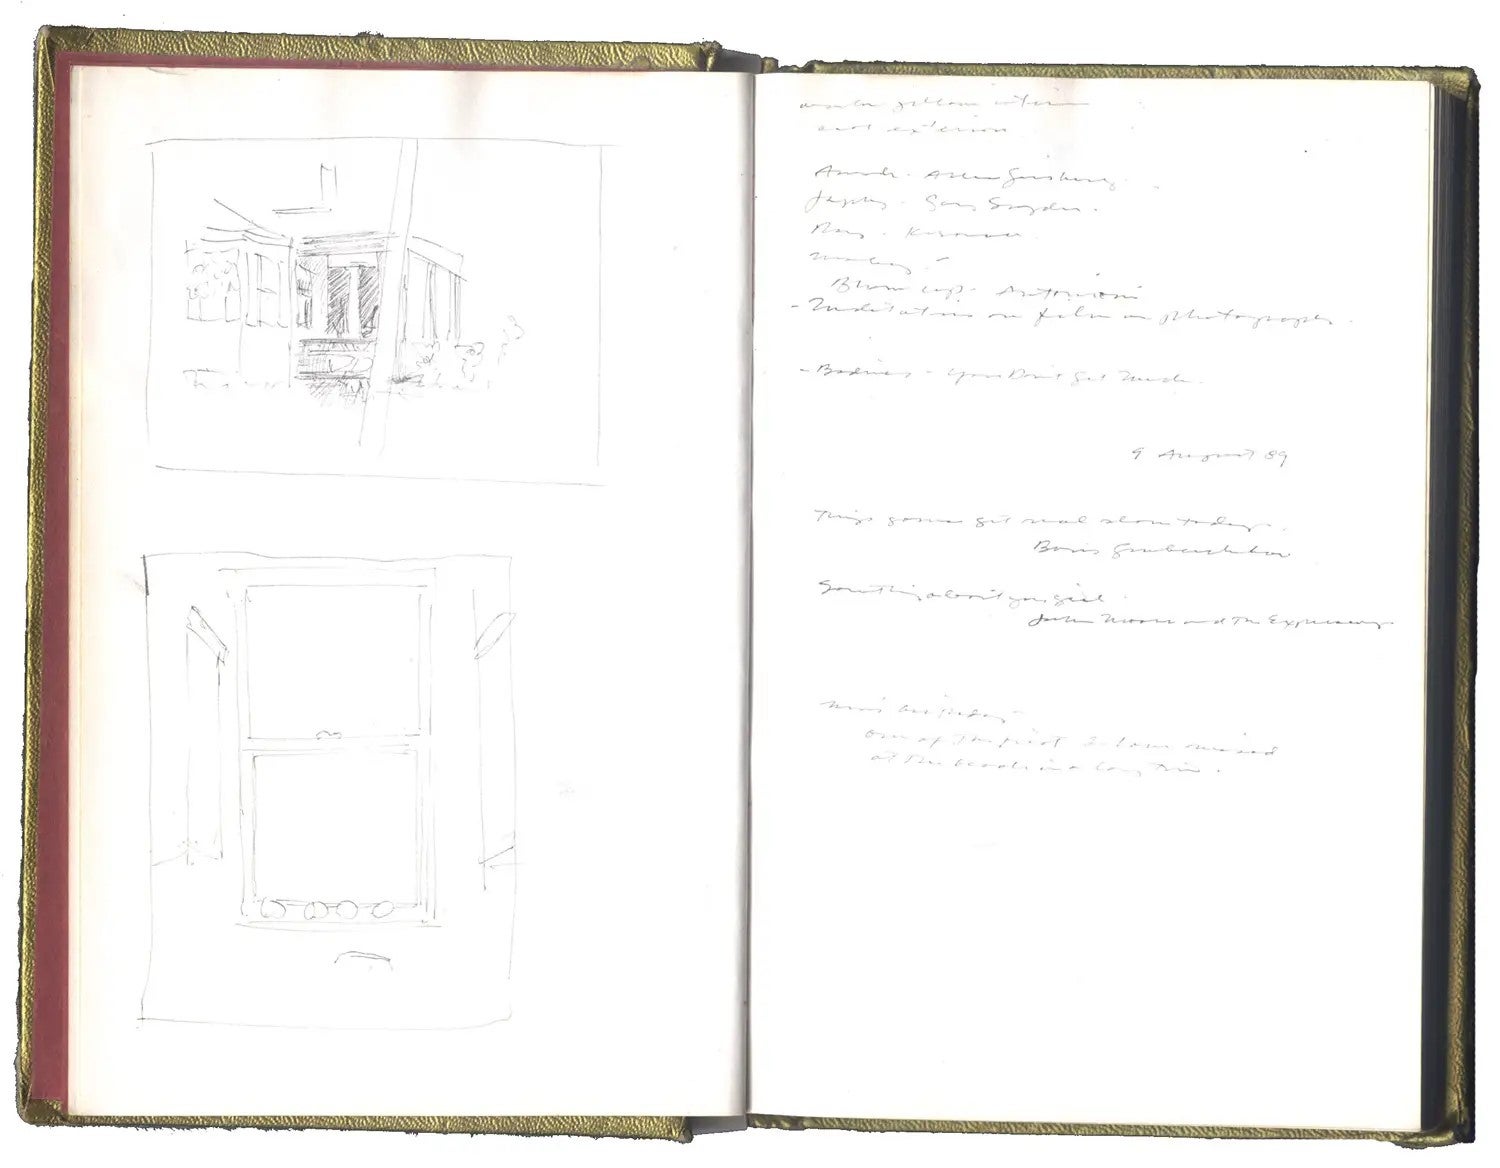 not exterior
Allen Ginsberg.
Japhy - Gary Snyder.
Ray - Kerouac
Blow up - Antonioni
- Meditation on film or photography.
- You Don't Get Much.
9 August 89
Things gonna get real slow today.
Boris Grebenshikov
Something about you girl
John Moore and The Expressway
Mom's birthday -
One of the first I have missed
at the beach in a long time.